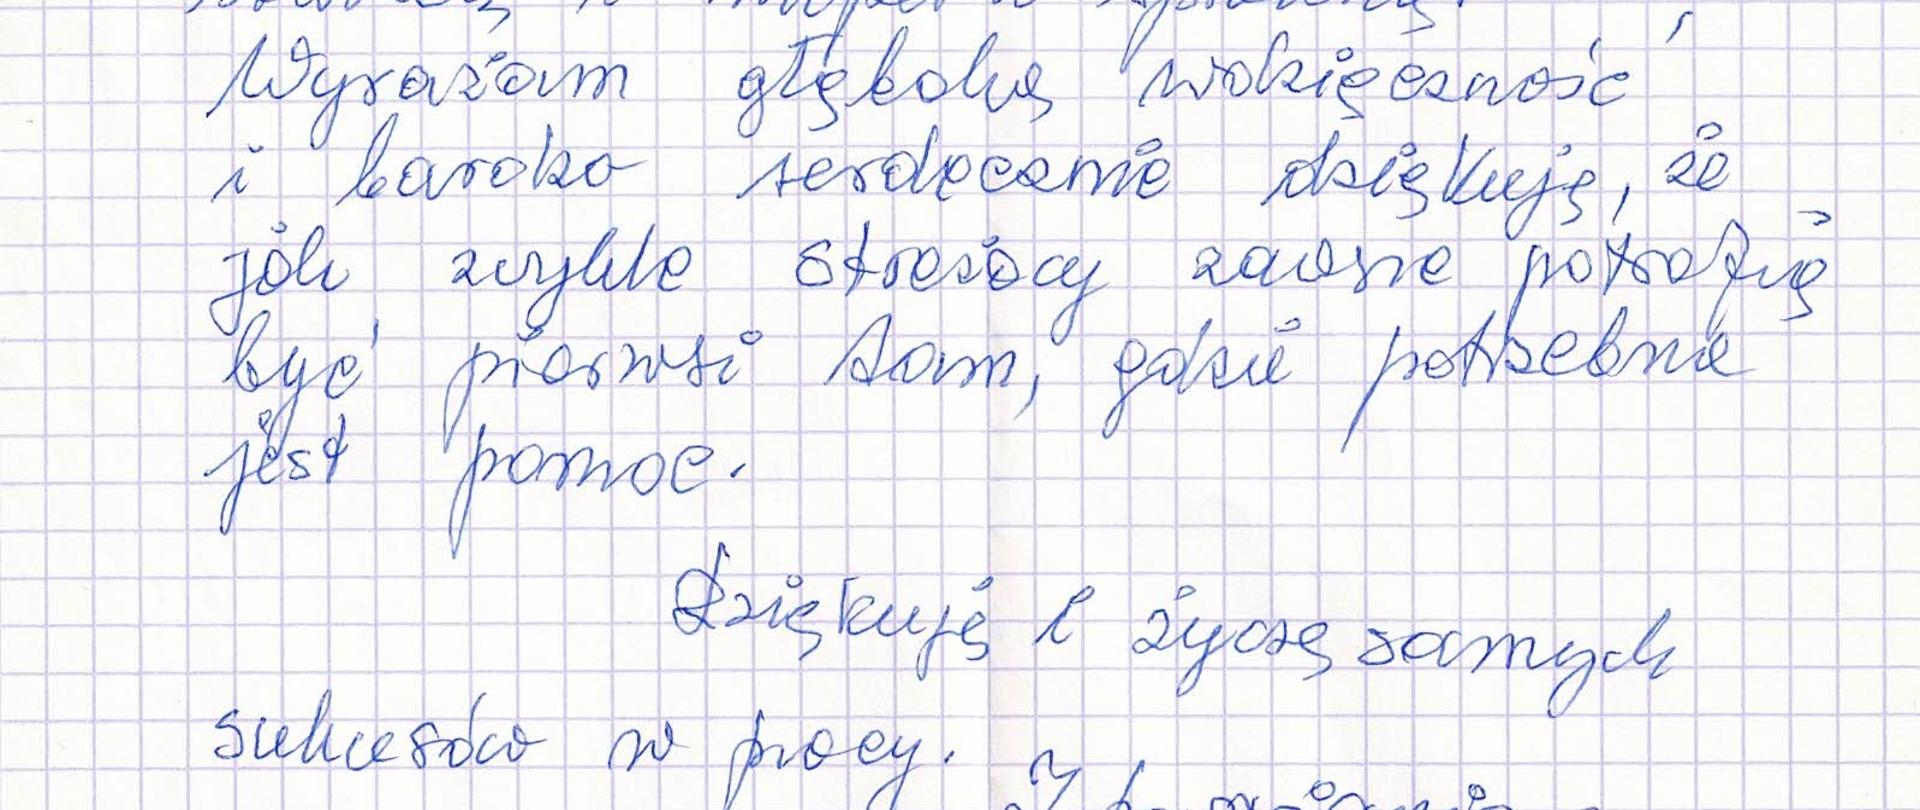 Wyrażam głęboką wdzięczność
i bardzo serdecznie dziękuję, że
jak zwykle strażacy zawsze potrafią
być pierwsi tam, gdzie potrzebna
jest pomoc.
Dziękuję i życzę samych
sukcesów w pracy.